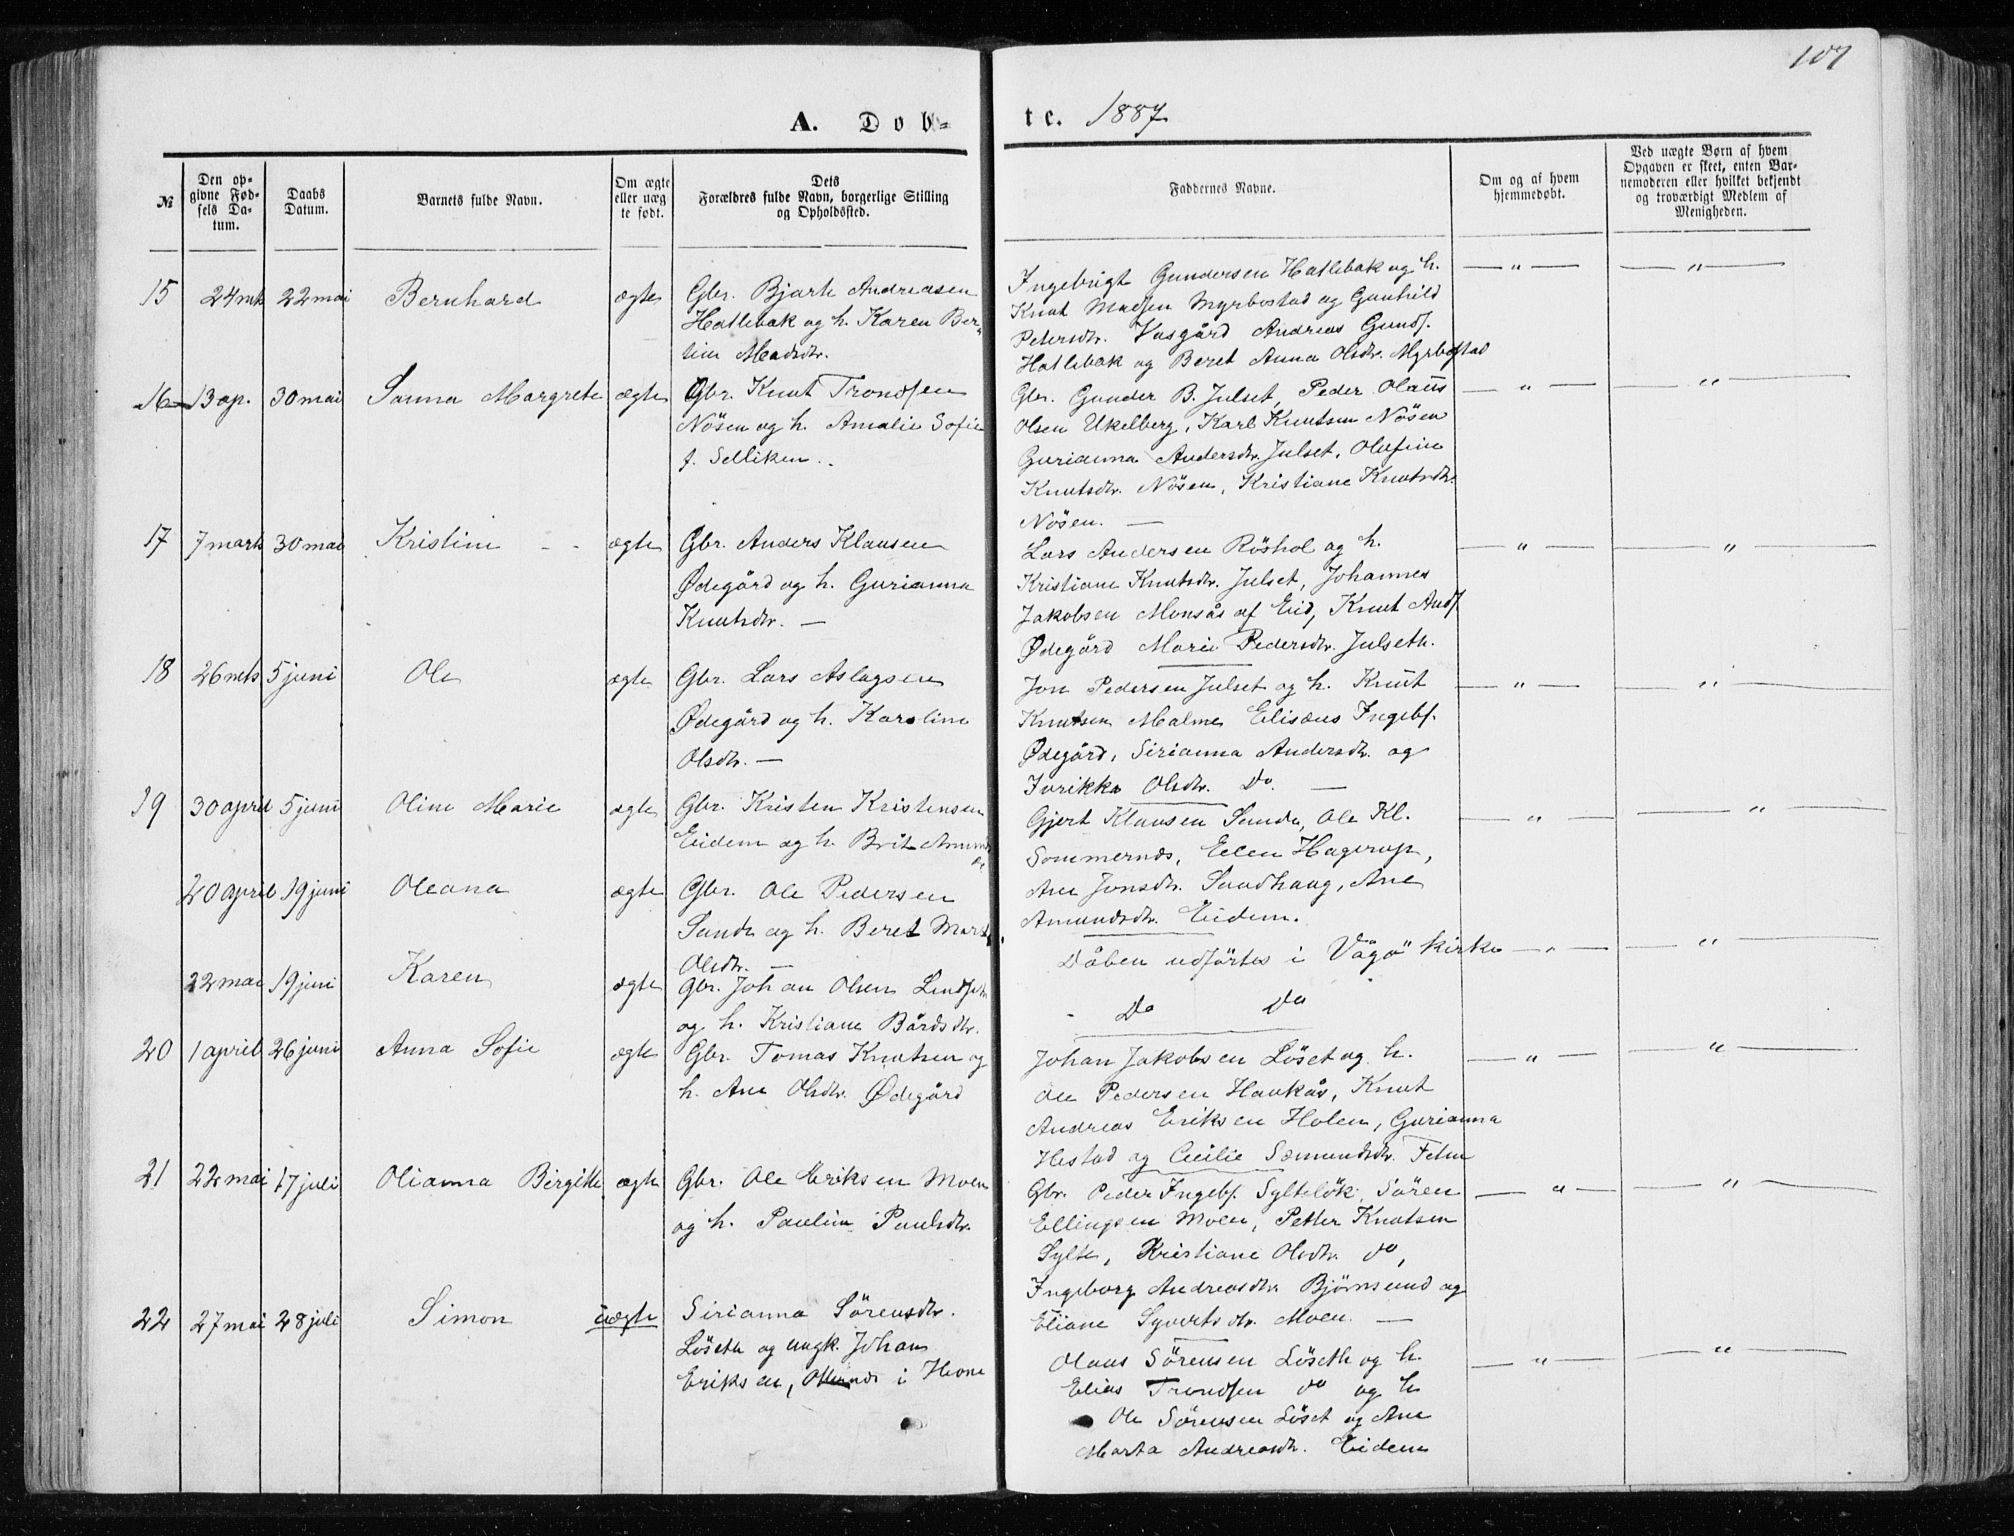 107
A. Døb-
te. 1887
№
Den op-
givne Fød-
sels Da-
tum.
Daabs
Datum.
Barnets fulde Navn.
Om ægte
eller uæg
te født.
Dets
Forældres fulde Navn, borgerlige Stilling
og Opholdssted.
Faddernes Navne.
Om og af hvem
hjemmedøbt.
Ved uægte Børn af hvem
Opgaven er skeet, enten Bar-
nemoderen eller hvilket bekjendt
og troværdigt Medlem af
Menigheden.
15 24 mts 22 mai Bernhard ægte
Gbr. Bjarte Andreasen
Hatlebak og h. Karen Ber-
tine Madsdtr.
Ingebrigt Gundersen Hatlebak og h.
Knut Madsen Myrbostad og Gunhild
Petersdtr. Vasgård Andreas Gunds.
Hatlebak og Beret Anna Olsdtr. Myrbostad
— " — — " —
16 13 ap. 30 mai Sanna Margrete ægte
Gbr. Knut Trondsen
Nösen og h. Amalie Sofie
f. Selliken.
Gbr. Gunder B. Julset, Peder Olaus
Olsen Ukelberg, Karl Knutsen Nösen
Gurianna Andersdtr. Julset, Olufine
Knutsdtr. Nösen, Kristiane Knutsdtr.
Nösen. —
— " — — " —
17 7 marts 30 mai Kristine - - ægte
Gbr. Anders Klausen
Ødegård og h. Gurianna
Knutsdtr. —
Lars Andersen Röshol og h.
Kristiane Knutsdtr. Julset, Johannes
Jakobsen Monsås af Eid, Knut Ands.
Ødegård Marie Pedersdtr. Julseth.
— " — — " —
18 26 mts 5 juni Ole ægte
Gbr. Lars Aslagsen
Ødegård og h. Karoline
Olsdtr. —
Jon Pedersen Julset og h. Knut
Knutsen Malme Elisæus Ingebs.
Ødegård, Sirianna Andersdtr. og
Jvrikke Olsdtr. Do. —
— " — — " —
19 30 april 5 juni Oline Marie ægte
Gbr. Kristen Kristensen
Eidem og h. Brit Amunds
dr
Gjert Klausen Sunde, Ole Kl.
Sommernes, Ellen Hagerup,
Ane Jonsdtr. Sandhaug, Ane
Amundsdtr. Eidem.
— " — — " —
20 april 19 juni Oleana ægte
Gbr. Ole Pedersen
Sunde og h. Beret Marta
Olsdtr. —
Dåben udförtes i Vågö kirke
— " — — " —
22 mai 19 juni Karen ægte
Gbr. Johan Olsen Lindset
og h. Kristiane Bårdsdtr.
- Do Do
20 1 april 26 juni Anna Sofie ægte
Gbr. Tomas Knutsen og
h. Ane Olsdtr. Ødegård
Johan Jakobsen Löset og h.
Ole Pedersen Haukås, Knut
Andreas Eriksen Holen, Gurianna
Hestad og Cecilie Sæmundsdtr. Felm
— " — — " —
21 22 mai 17 juli Olianna Birgitte ægte
Gbr. Ole Eriksen Moen
og h. Pauline Paulsdtr.
Gbr. Peder Ingebs. Syltelök, Sören
Ellingsen Moen, Petter Knutsen
Sylte, Kristiane Olsdtr. do,
Ingeborg Andreasdtr. Bjørnsund og
Eliane Syvertsdtr. Moen. —
— " — — " —
22 27 mai 28 juli Simon uægte
Sirianna Sörensdtr.
Löseth og ungk. Johan
Eriksen, i Hevne
Olaus Sörensen Löseth og h.
Elias Trondsen do og h
Ole Sörensen Löset og Ane
Marta Andreasdtr. Eidem
— " — — " —